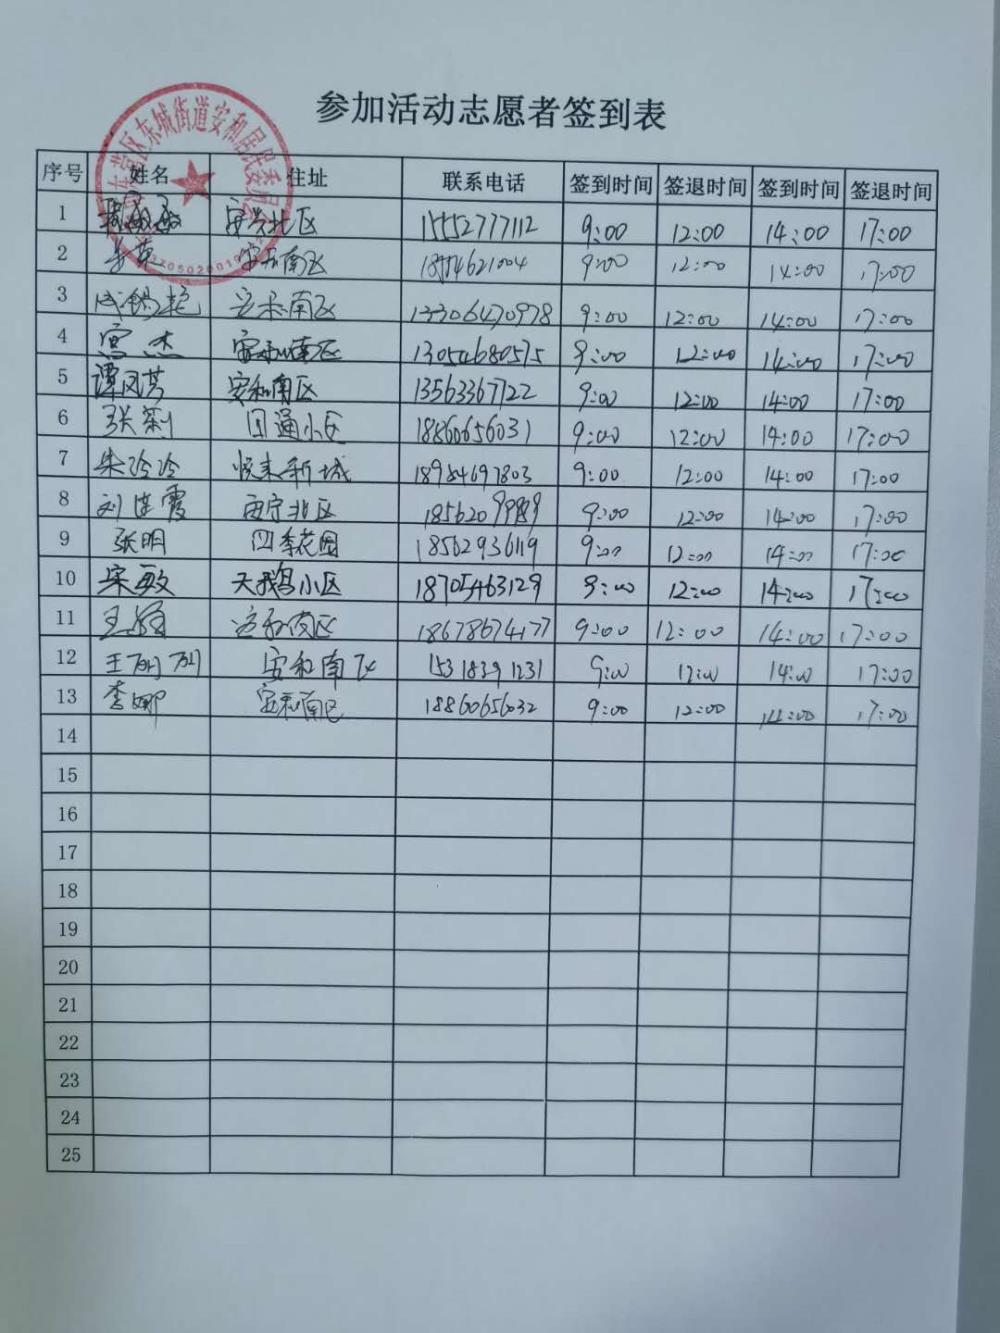 参加活动志愿者签到表
东营区东城街道安和居民委员会
序号 姓名 住址 联系电话 签到时间 签退时间 签到时间 签退时间
1 北区 15552777112 9:00 12:00 14:00 17:00
2 安和南区 9:00 12:00 14:00 17:00
3 安和南区 13306470978 9:00 12:00 14:00 17:00
4 宫杰 安和南区 13054680575 9:00 12:00 14:00 17:00
5 谭凤芹 安和南区 13563367122 9:00 12:00 14:00 17:00
6 张 小区 18860656031 9:00 12:00 14:00 17:00
7 朱冷冷 悦来新城 18984697803 9:00 12:00 14:00 17:00
8 刘莲霞 西宁北区 9:00 12:00 14:00 17:00
9 张明 四季花园 18562936119 9:00 12:00 14:00 17:00
10 宋敏 天鹅小区 18705463129 9:00 12:00 14:00 17:00
11 王 南区 18678674177 9:00 12:00 14:00 17:00
12 王丽丽 安和南区 15318391231 9:00 12:00 14:00 17:00
13 李娜 安和南区 18860656032 9:00 12:00 14:00 17:00
14
15
16
17
18
19
20
21
22
23
24
25